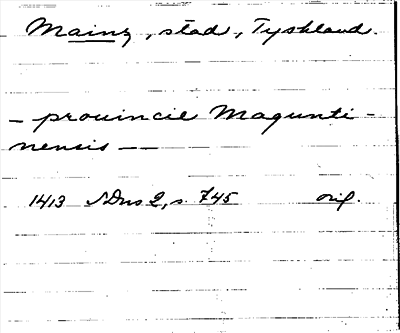 Mainz, stad, Tyskland.
– prouincie Magunti-
nensis – –
1413 SDns 2, s. 745 orig.